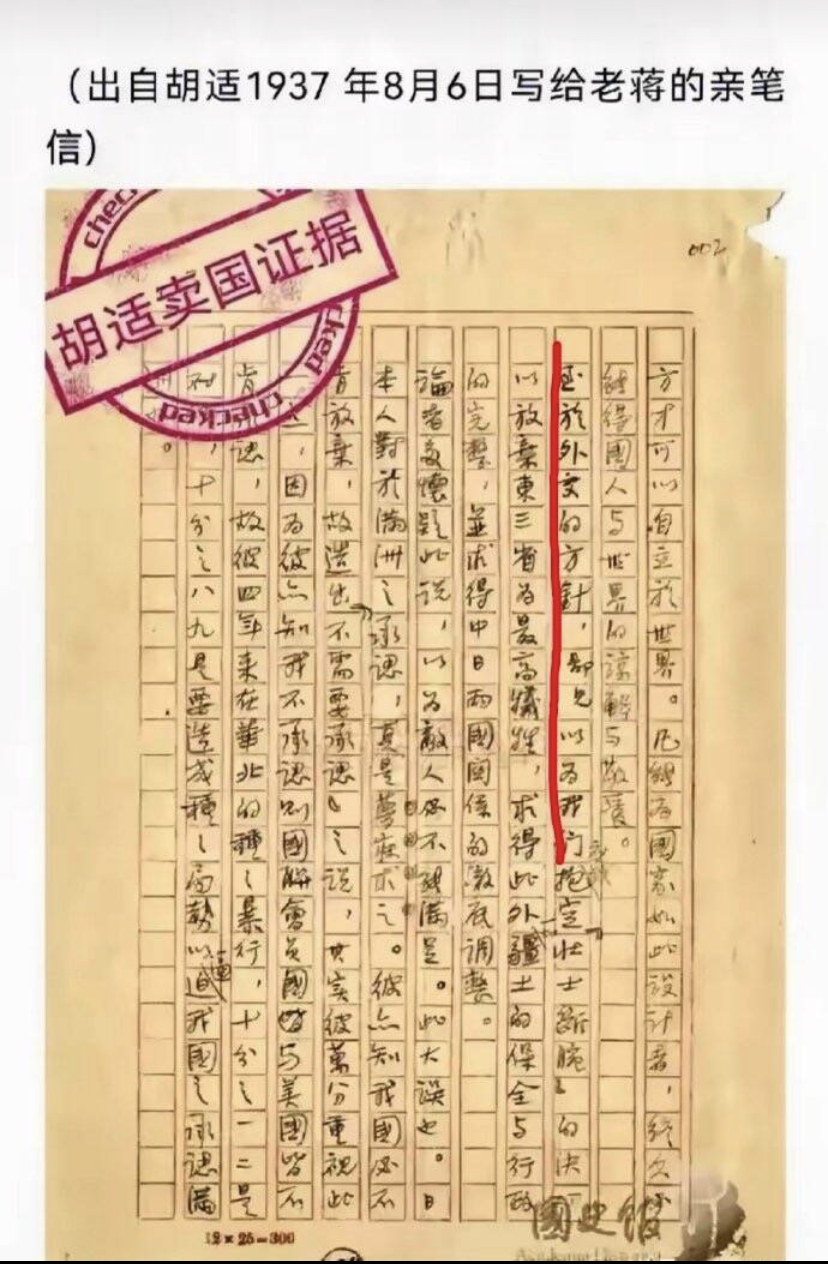 （出自胡适1937 年8月6日写给老蒋的亲笔
信）
checked
胡适卖国证据
checked
002
方才可以自立於世界。凡能為國家如此設計者，終久必
能得國人與世界的諒解與敬重。
至於外交的方針，鄙見以為我们抱定「壯士斷腕」的決
以放棄東三省為最高犧牲，求得此外疆土的保全與行政
的完整，並求得中日兩國關係的澈底調整。
論者多懷疑此說，以為敵人必不能滿足。此大誤也。日
本人對於滿洲之承認，真是夢寐求之。彼亦知我國必不
肯放棄，故造出「不需要承認」之說，其實彼萬分重視此
，因為彼亦知我不承認則國聯會員國皆與美國皆不
肯承認，故彼四年來在華北的種々暴行，十分之一二是
，十分之八九是要造成種々局勢以逼我國之承認滿
。
12×25=300
國史館